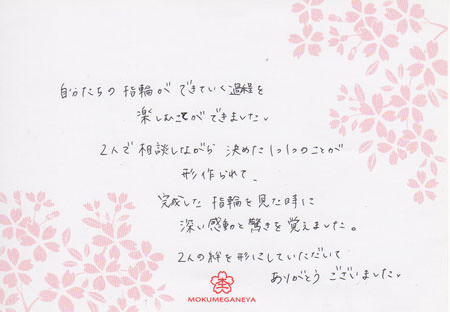 自分たちの指輪ができていく過程を
楽しむことができました。
2人で相談しながら決めた1つ1つのことが
形作られて、
完成した指輪を見た時に
深い感動と驚きを覚えました。
2人の絆を形にしていただいて
ありがとうございました。
MOKUMEGANEYA